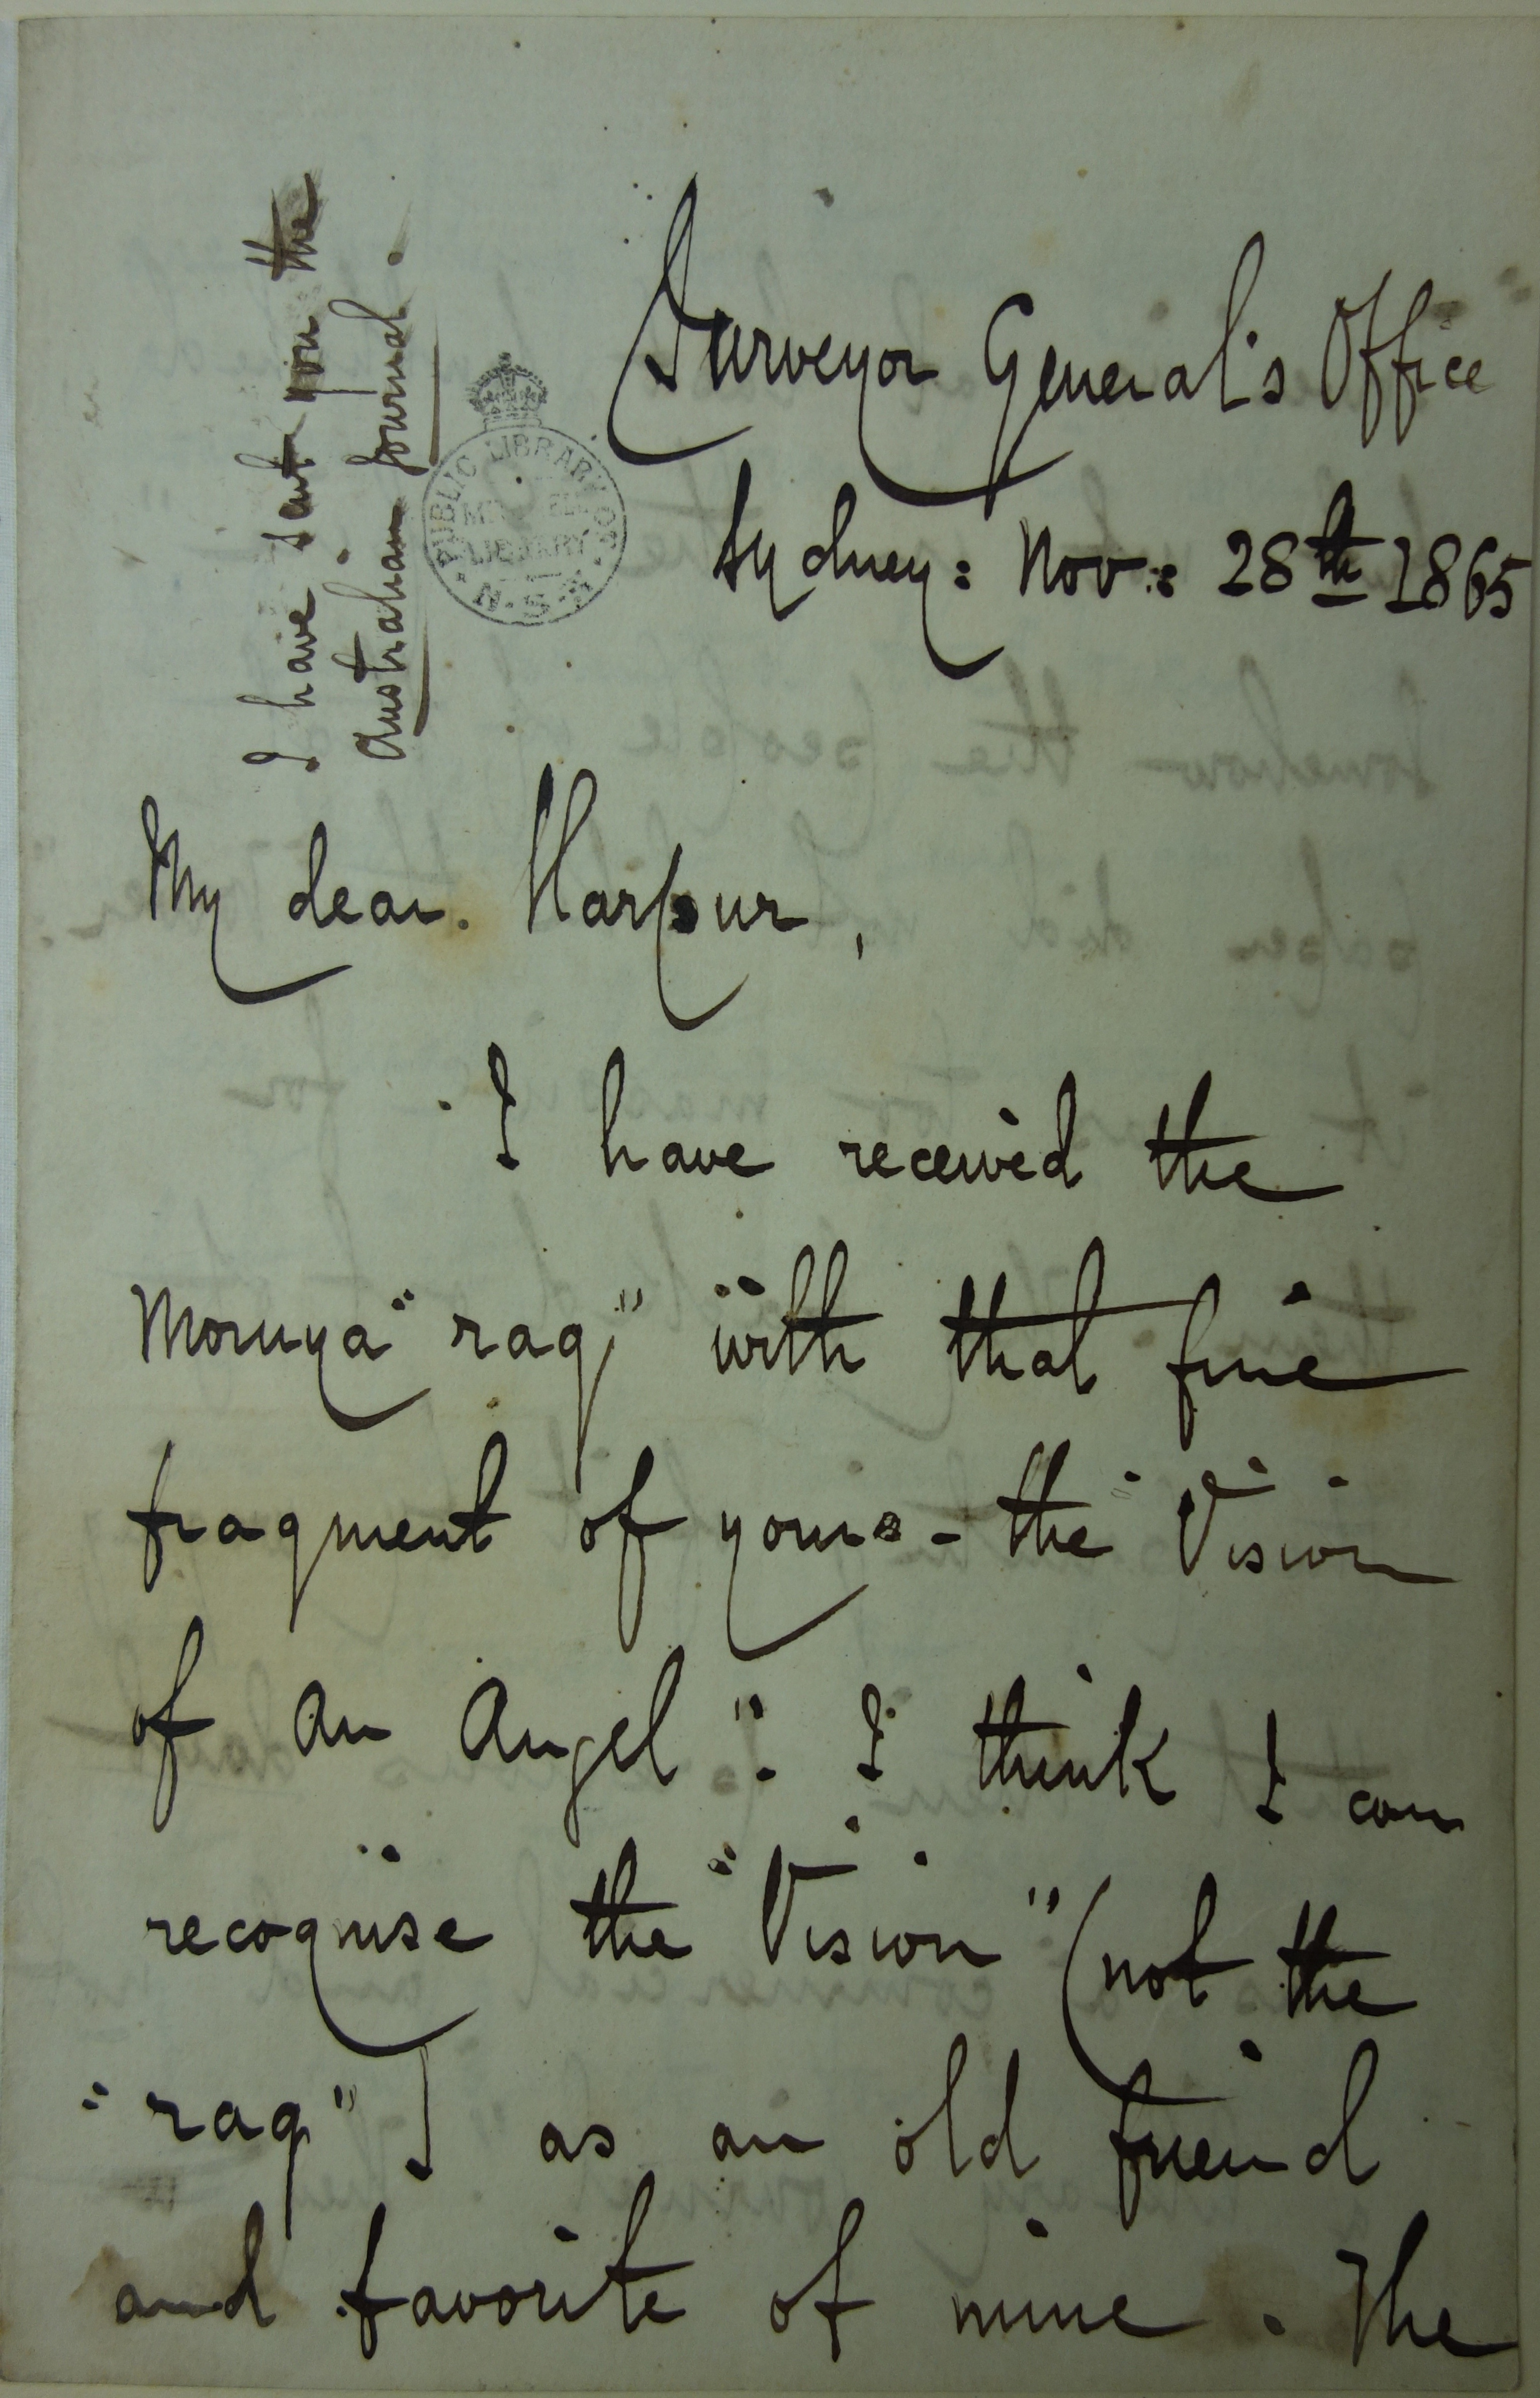 I have sent you the
Australian Journal.
PUBLIC LIBRARY OF
MITCHELL
LIBRARY
N.S.W.
Surveyor General's Office
Sydney: Nov: 28th 1865
My dear Harpur,
I have received the
Moruya "rag," with that fine
fragment of yours - the "Vision
of an Angel". I think I can
recognise the "Vision" (not the
"rag") as an old friend
and favorite of mine. The